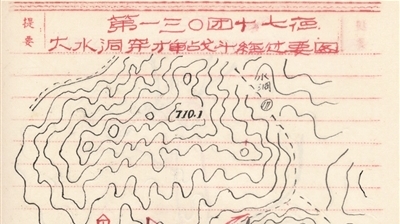 提要
第一三〇团十七夜
大水洞穿插战斗经过要图
水洞
710.1